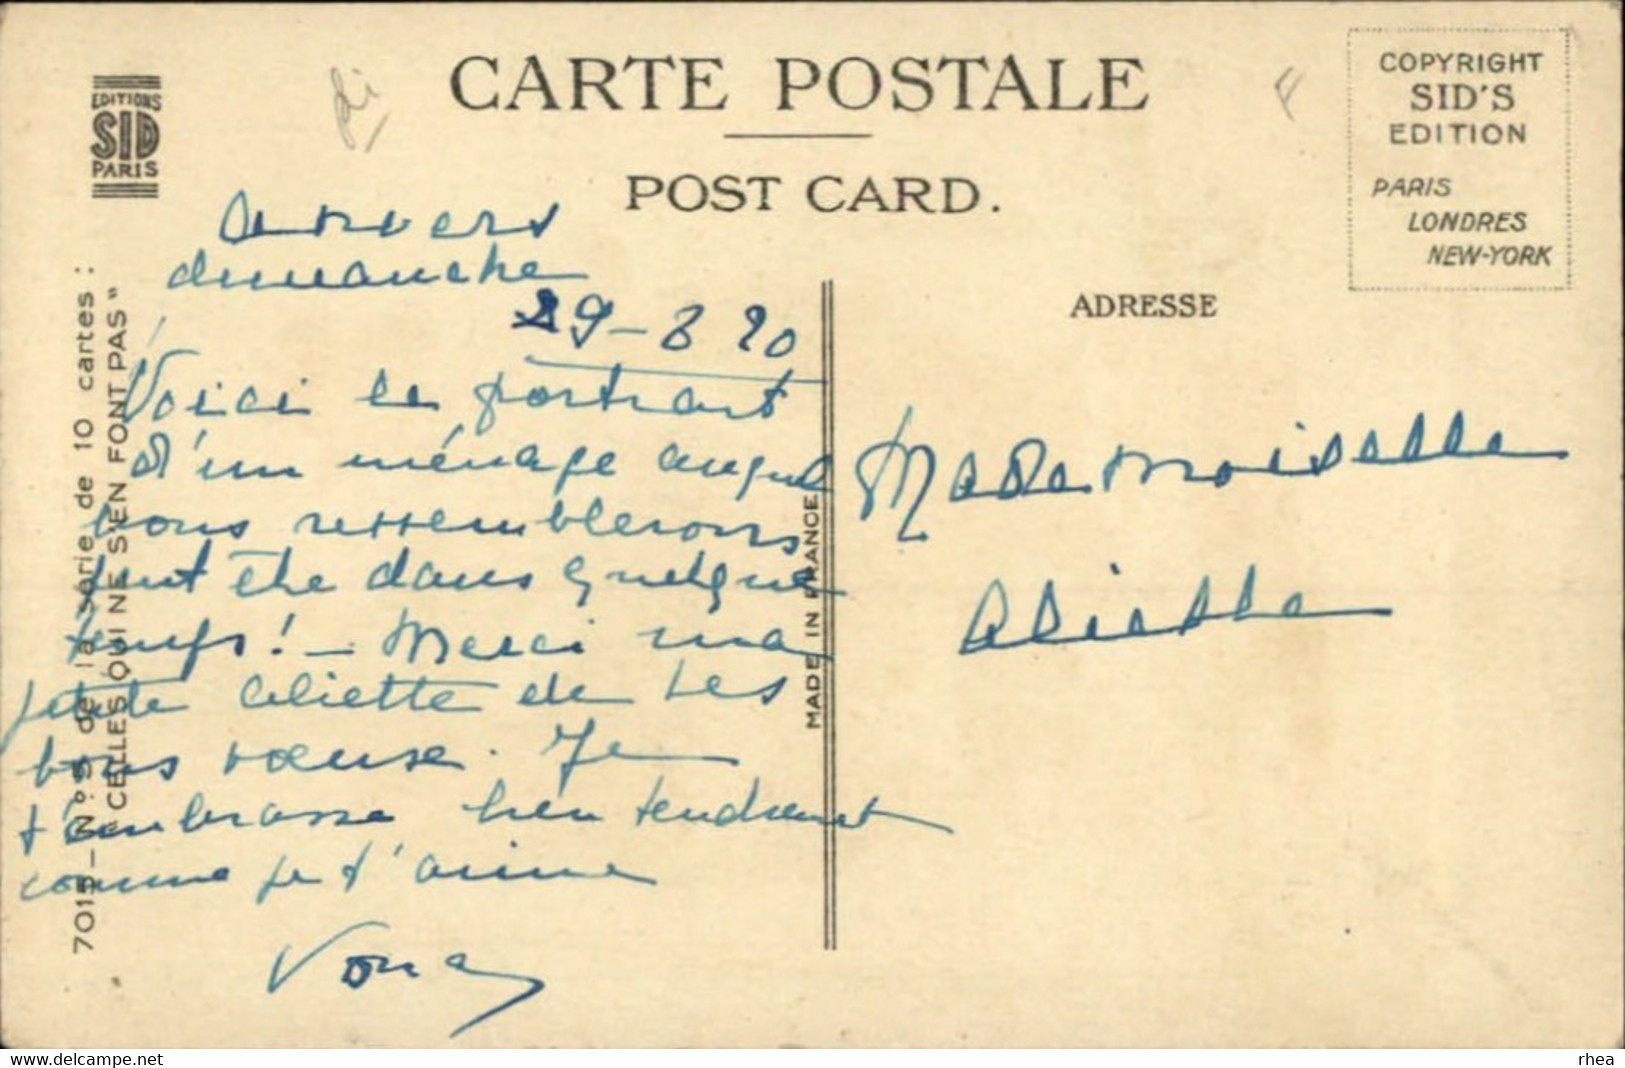 CARTE POSTALE
POST CARD.
EDITIONS
SID
PARIS
COPYRIGHT
SID'S
EDITION
PARIS
LONDRES
NEW-YORK
ADRESSE
7015 – N° 9 de la série de 10 cartes :
"CELLES QUI NE S'EN FONT PAS"
MADE IN FRANCE
F
Anvers
dimanche
29-8 20
Voici le portrait
d'un ménage auquel
nous ressemblerons
peut être dans quelque
temps! - Merci ma
petite Aliette de tes
bons voeux. Je
t'embrasse bien tendrement
comme je t'aime
Mademoiselle
Aliette
www.delcampe.net
rhea